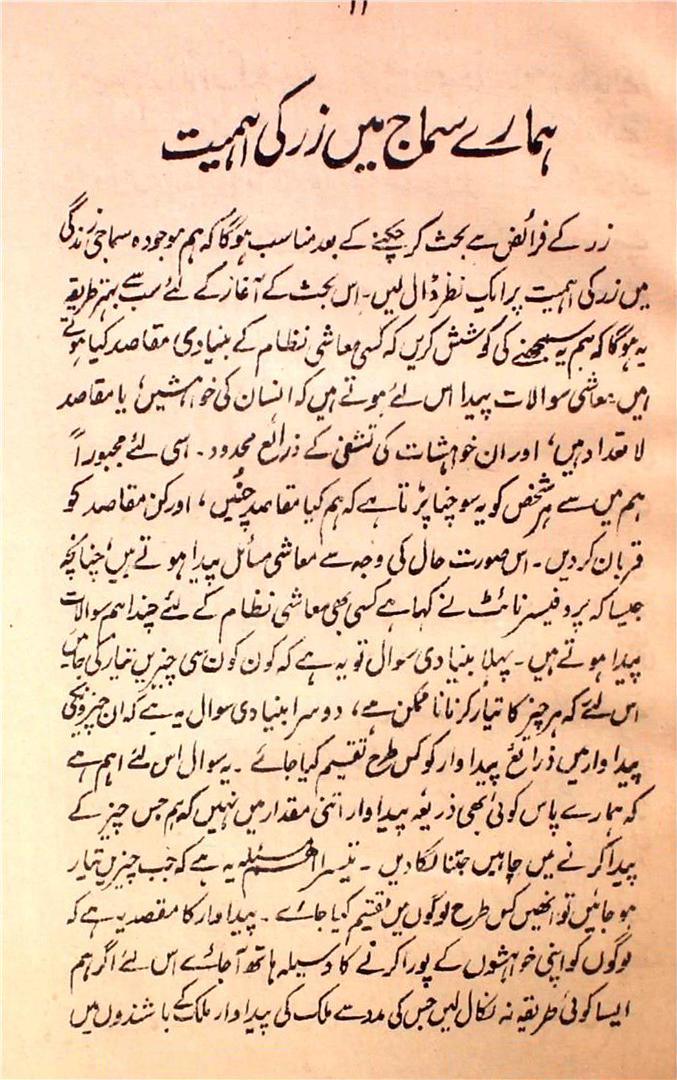 ۱۱
ہمارے سماج میں زر کی اہمیت
زر کے فرائض سے بحث کر چکنے کے بعد مناسب ہوگا کہ ہم موجودہ سماجی زندگی
میں زر کی اہمیت پر ایک نظر ڈال لیں۔ اس بحث کے آغاز کے لئے سب سے بہتر طریقہ
یہ ہوگا کہ ہم یہ سمجھنے کی کوشش کریں کہ کسی معاشی نظام کے بنیادی مقاصد کیا ہوتے
ہیں۔ معاشی سوالات پیدا اس لئے ہوتے ہیں کہ انسان کی خواہشیں، یا مقاصد
لا تعداد ہیں، اور ان خواہشات کی تشفی کے ذرائع محدود۔ اسی لئے مجبوراً
ہم میں سے ہر شخص کو یہ سوچنا پڑتا ہے کہ ہم کیا مقاصد چنیں، اور کن مقاصد کو
قربان کر دیں۔ اس صورت حال کی وجہ سے معاشی مسائل پیدا ہوتے ہیں، چنانچہ
جیسا کہ پروفیسر نائٹ نے کہا ہے کسی بھی معاشی نظام کے لئے چند اہم سوالات
پیدا ہوتے ہیں۔ پہلا بنیادی سوال تو یہ ہے کہ کون کون سی چیزیں تیار کی جائیں
اس لئے کہ ہر چیز کا تیار کرنا نا ممکن ہے، دوسرا بنیادی سوال یہ ہے کہ ان چیزوں کی
پیداوار میں ذرائع پیداوار کو کس طرح تقسیم کیا جائے۔ یہ سوال اس لئے اہم ہے
کہ ہمارے پاس کوئی بھی ذریعہ پیداوار اتنی مقدار میں نہیں کہ ہم جس چیز کے
پیدا کرنے میں چاہیں جتنا لگا دیں۔ تیسرا اہم مسئلہ یہ ہے کہ جب چیزیں تیار
ہو جائیں تو انھیں کس طرح لوگوں میں تقسیم کیا جائے۔ پیداوار کا مقصد یہ ہے کہ
لوگوں کو اپنی خواہشوں کے پورا کرنے کا وسیلہ ہاتھ آجائے اس لئے اگر ہم
ایسا کوئی طریقہ نہ نکال لیں جس کی مدد سے ملک کی پیداوار ملک کے باشندوں میں